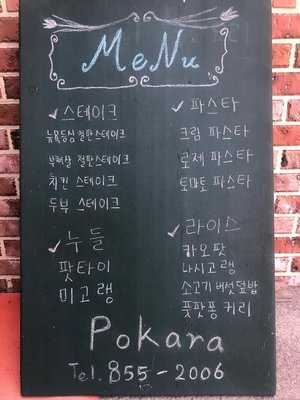 MeNu
✓ 스테이크
뉴욕등심 철판스테이크
부채살 철판스테이크
치킨 스테이크
두부 스테이크
✓ 누들
팟타이
미고랭
✓ 파스타
크림 파스타
로제 파스타
토마토 파스타
✓ 라이스
카오팟
나시고랭
소고기 버섯덮밥
풋팟퐁 커리
Pokara
Tel. 855-2006